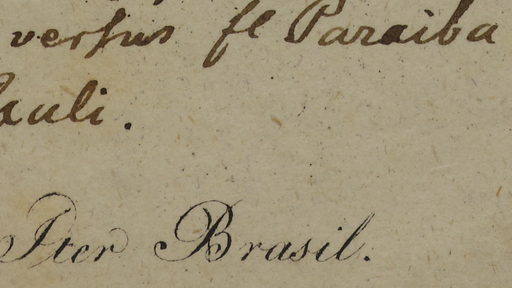 versus fl Paraiba
auli.
Iter Brasil.